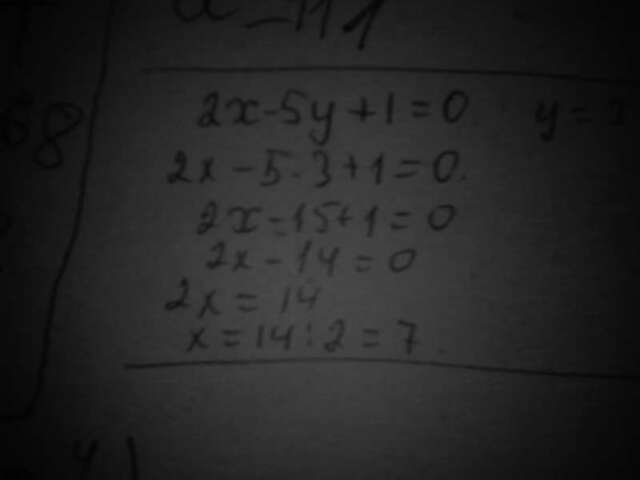 68
2x-5y+1=0 y=
2x-5·3+1=0.
2x-15+1=0
2x-14=0
2x=14
x=14:2=7.